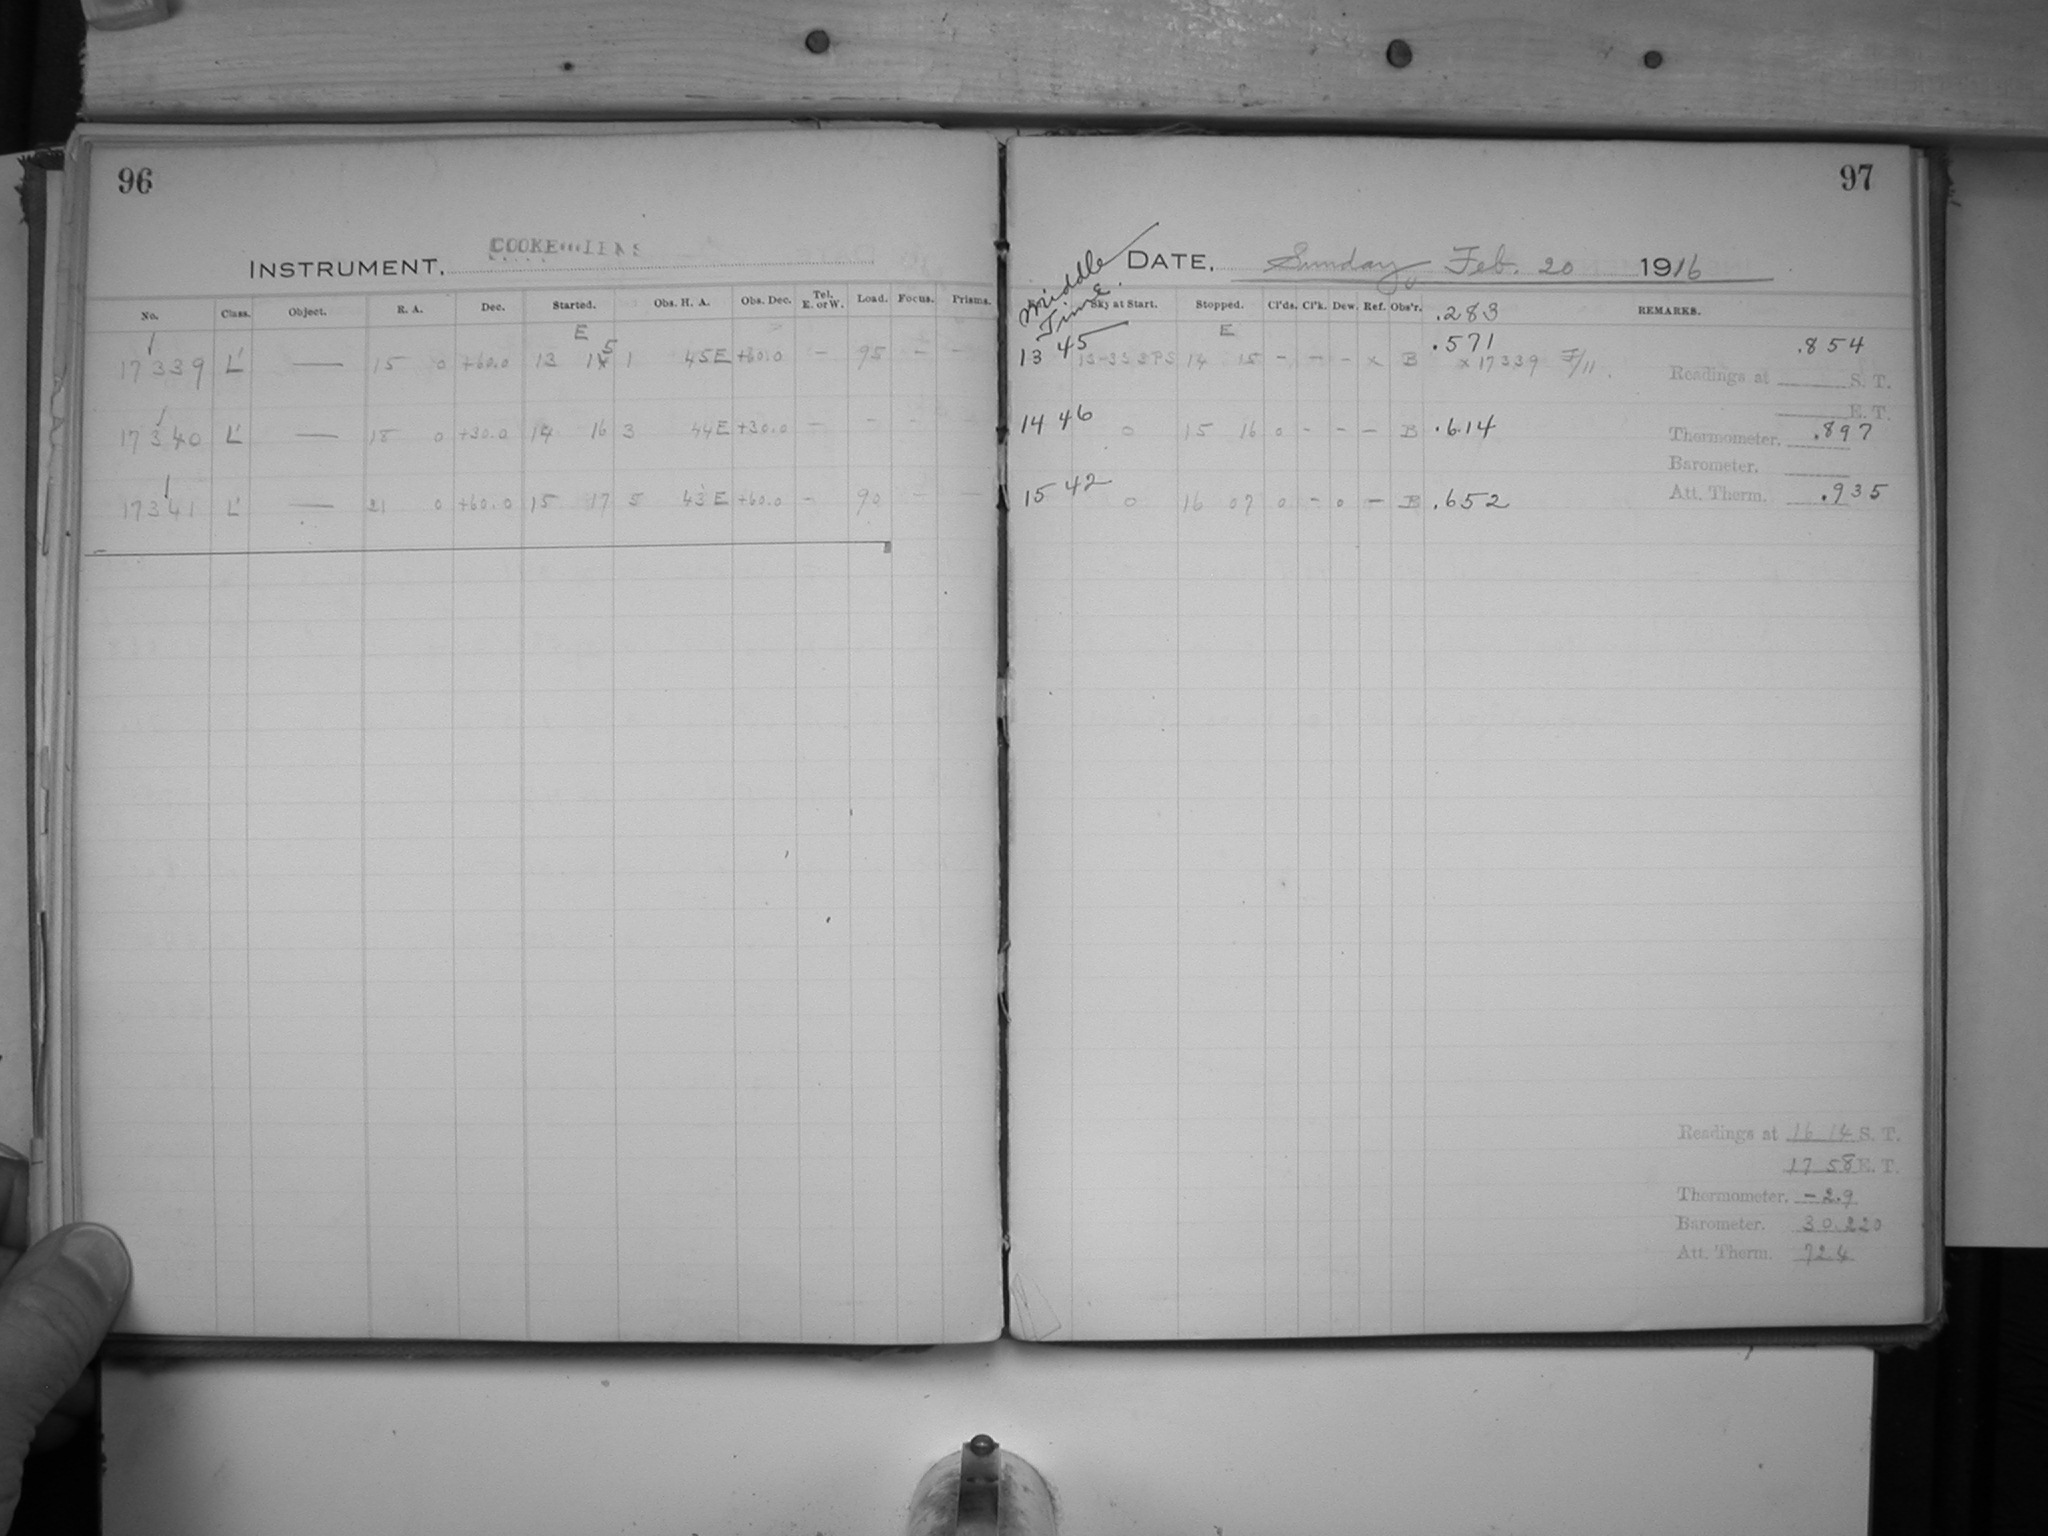 96
INSTRUMENT, COOKE LENS
No. Class. Object. R. A. Dec. Started. Obs. H. A. Obs. Dec. Tel. E. or W. Load. Focus. Prisms.
E
17339 L' — 15 0 +60.0 13 15 1 45E +60.0 – 95 – –
17340 L' — 18 0 +30.0 14 16 3 44E +30.0 – – – –
17341 L' — 21 0 +60.0 15 17 5 43E +60.0 – 90 – –
97
DATE, Sunday Feb. 20 1916
Middle Time.
Sky at Start. Stopped. Cl'ds. Cl'k. Dew. Ref. Obs'r. .283 REMARKS.
E
13 45 13-35 3PS 14 15 – – – x B .571 x 17339 F/11. .854
Readings at S. T.
E. T.
14 46 0 15 16 0 – – – B .614
Thermometer. .897
Barometer.
15 42 0 16 07 0 – 0 – B .652
Att. Therm. .935
Readings at 16 14 S. T.
17 58 E. T.
Thermometer. –2.9
Barometer. 30.220
Att. Therm. 72.4